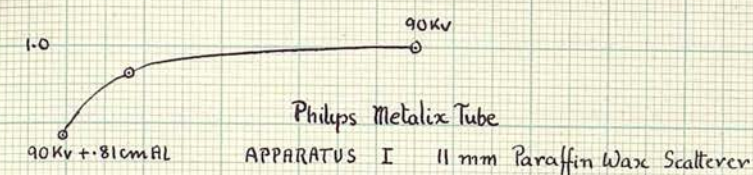 90Kv
1.0
Philips Metalix Tube
90Kv + .81cm AL
APPARATUS I 11 mm Paraffin Wax Scatterer